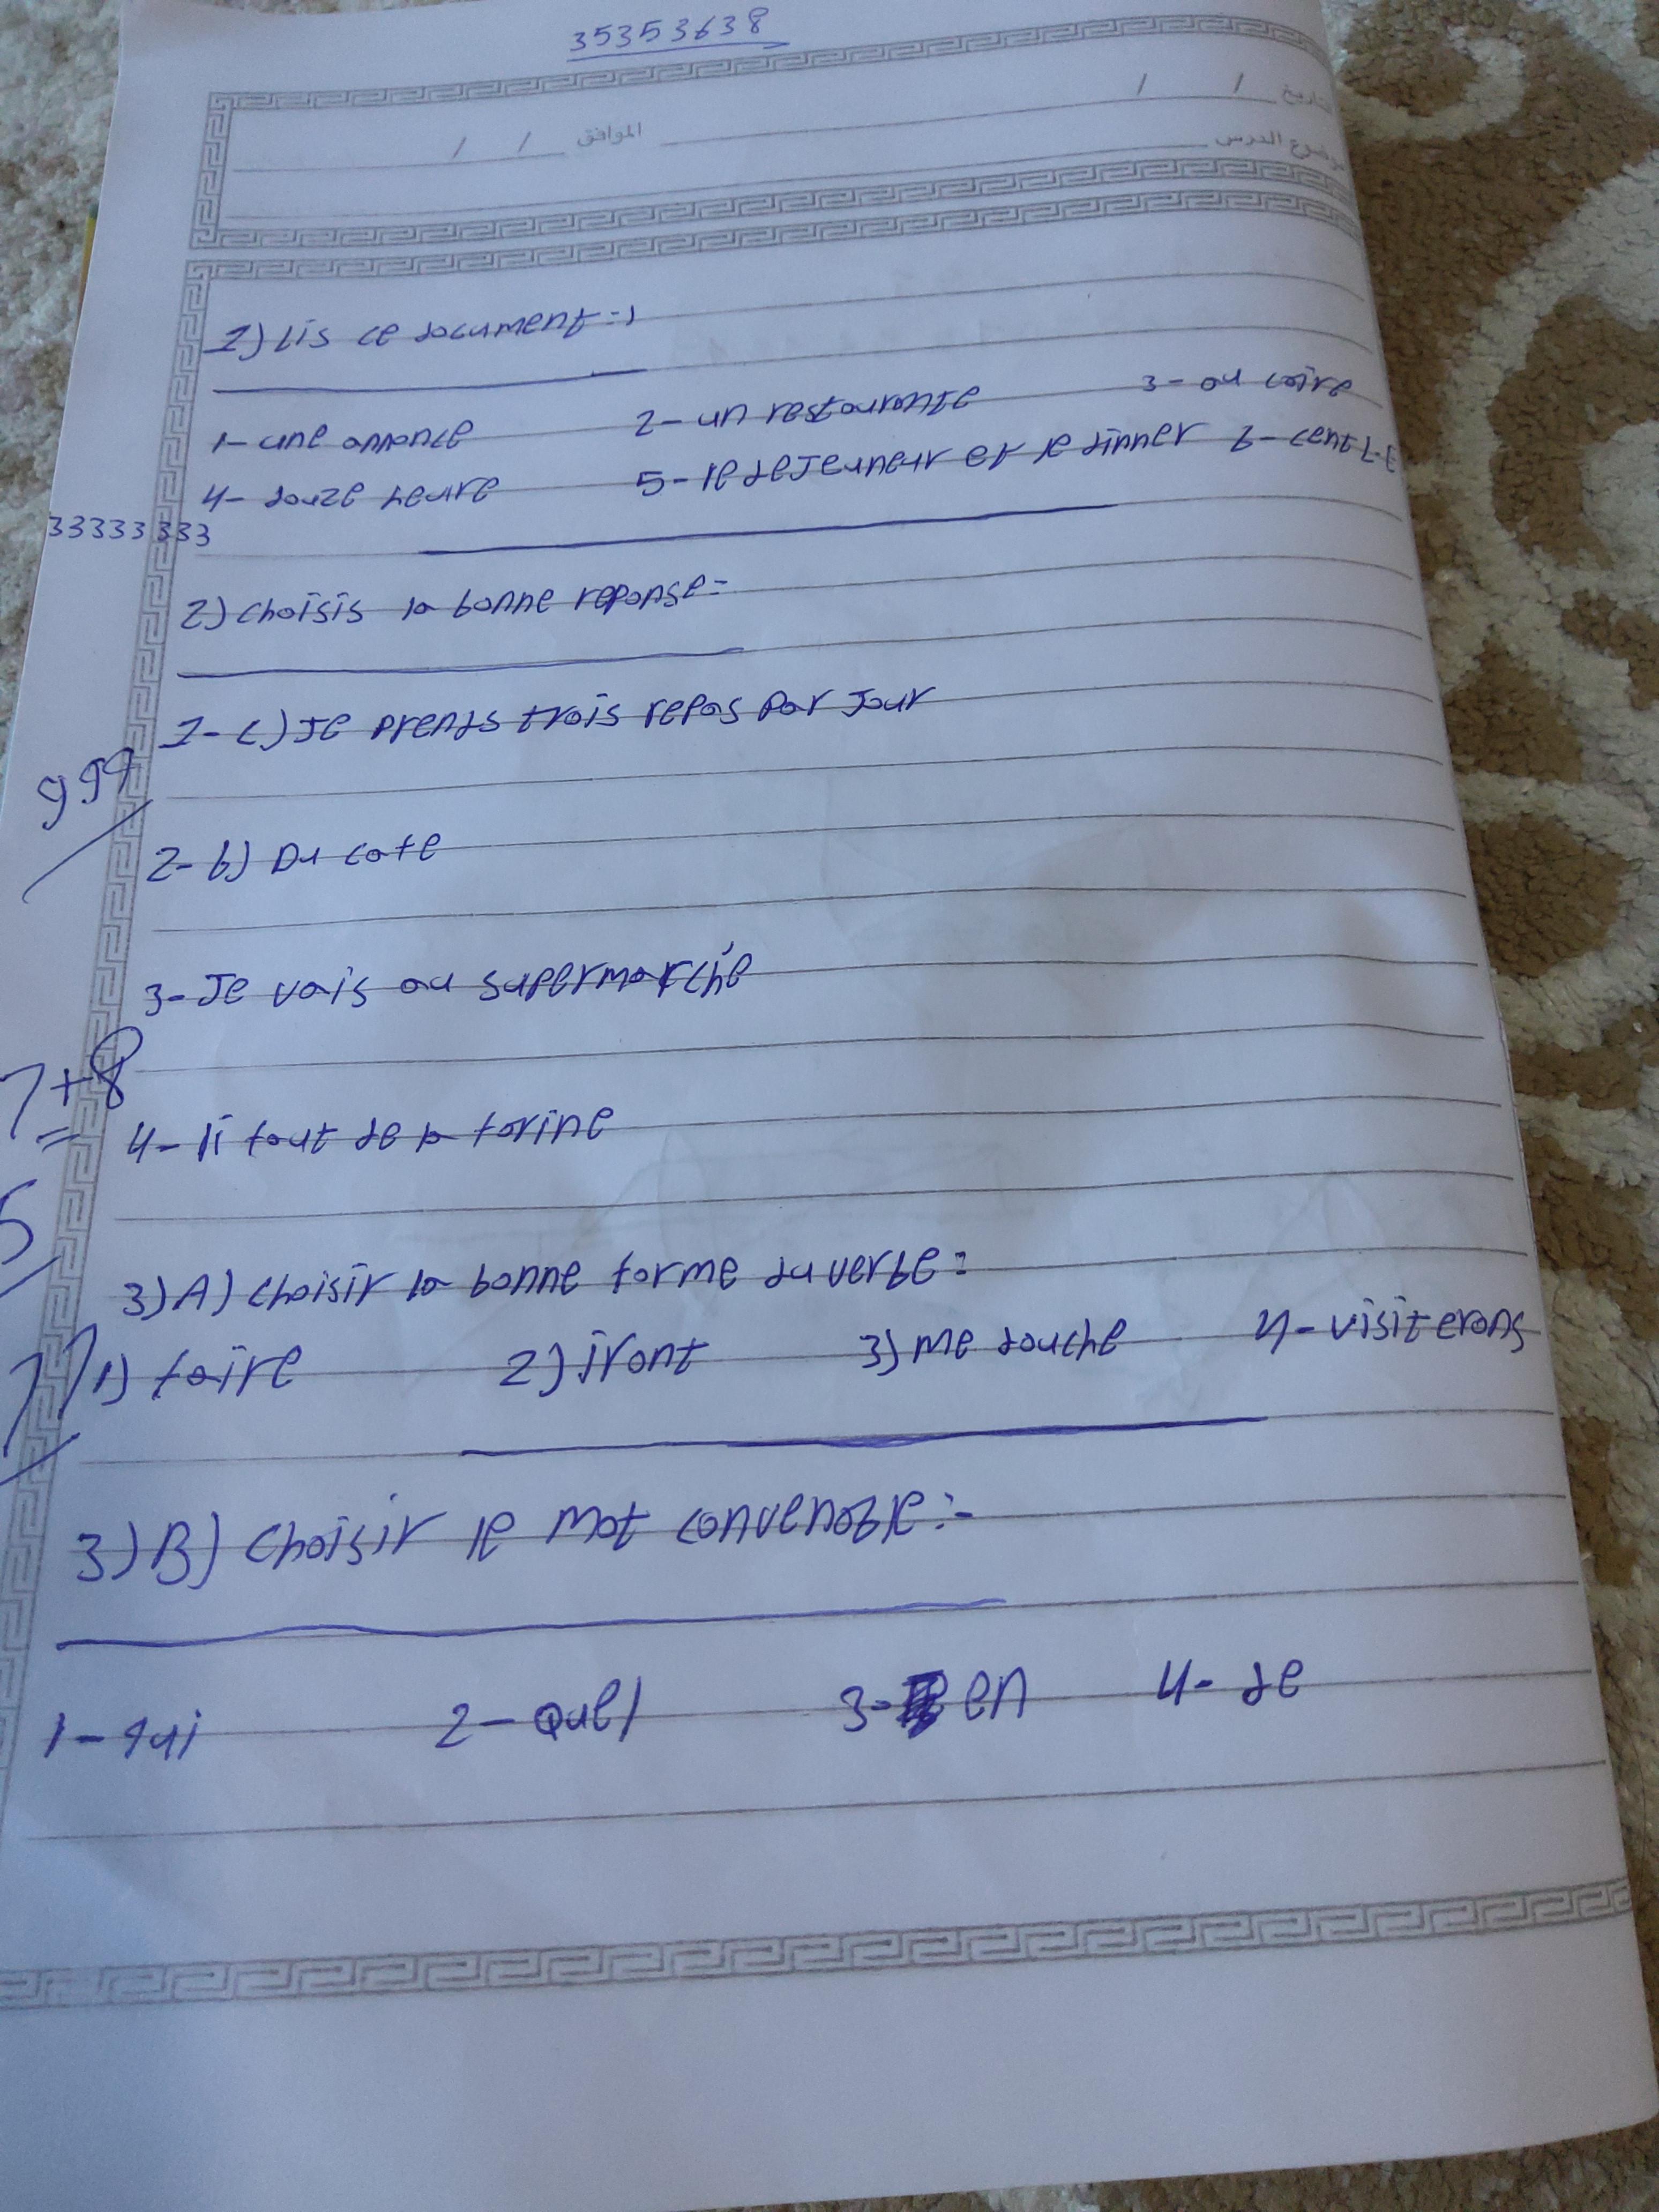 35353638
التاريخ / / الموافق / /
موضوع الدرس
1) Lis ce document :
1- une annonce 2- un restourante 3- au caire
4- douze heure 5- le dejeuneur et le dinner 6- cent L.E
33333333
2) choisis la bonne reponse =
1- c) Je prends trois repas par jour
999
2- b) Du cafe
3- Je vais au supermarché
7+8
=
4- Il faut de la farine
5
3) A) choisir la bonne forme du verbe =
1) faire 2) iront 3) me douche 4- visiterons
77
3) B) choisir le mot convenable :-
1- qui 2- quel 3- en 4- de